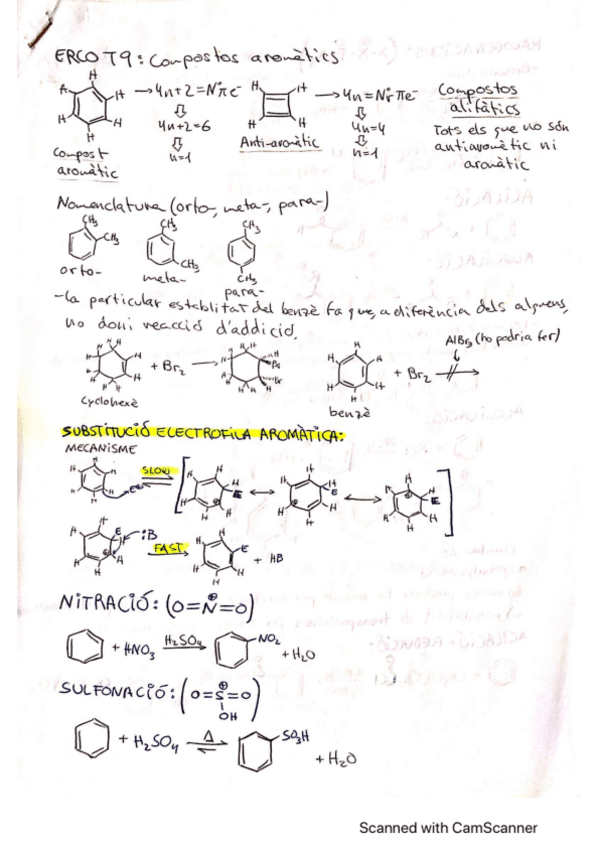 ERCO T9: Compostos aromàtics
→ 4n+2 = Nº π e⁻
4n+2=6
n=1
Compost aromàtic
→ 4n = Nº π e⁻
4n=4
n=1
Anti-aromàtic
Compostos alifàtics
Tots els que no són
antiaromàtic ni
aromàtic
Nomenclatura (orto-, meta-, para-)
CH3 CH3 CH3
CH3 CH3 CH3
orto- meta- para-
-La particular estabilitat del benzè fa que, a diferència dels alquens,
no doni reacció d'addició.
AlBr3 (ho podria fer)
+ Br2 → + Br2
cyclohexè benzè
SUBSTITUCIÓ ELECTROFILA AROMÀTICA:
MECANISME
SLOW
:B
FAST
+ HB
NITRACIÓ: (O=N⊕=O)
+ HNO3 H2SO4 → NO2 + H2O
SULFONACIÓ: (O=S⊕=O)
OH
+ H2SO4 Δ ⇌ SO3H + H2O
Scanned with CamScanner